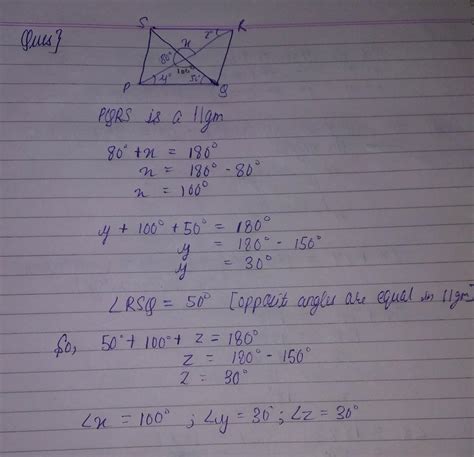 Ques 7
S R
x z°
80°
100°
y° 50°
P Q
PQRS is a ||gm
80° + x = 180°
x = 180° - 80°
x = 100°
y + 100° + 50° = 180°
y = 180° - 150°
y = 30°
∠RSQ = 50° [opposit angles are equal in ||gm]
So, 50° + 100° + z = 180°
z = 180° - 150°
z = 30°
∠x = 100° ; ∠y = 30° ; ∠z = 30°